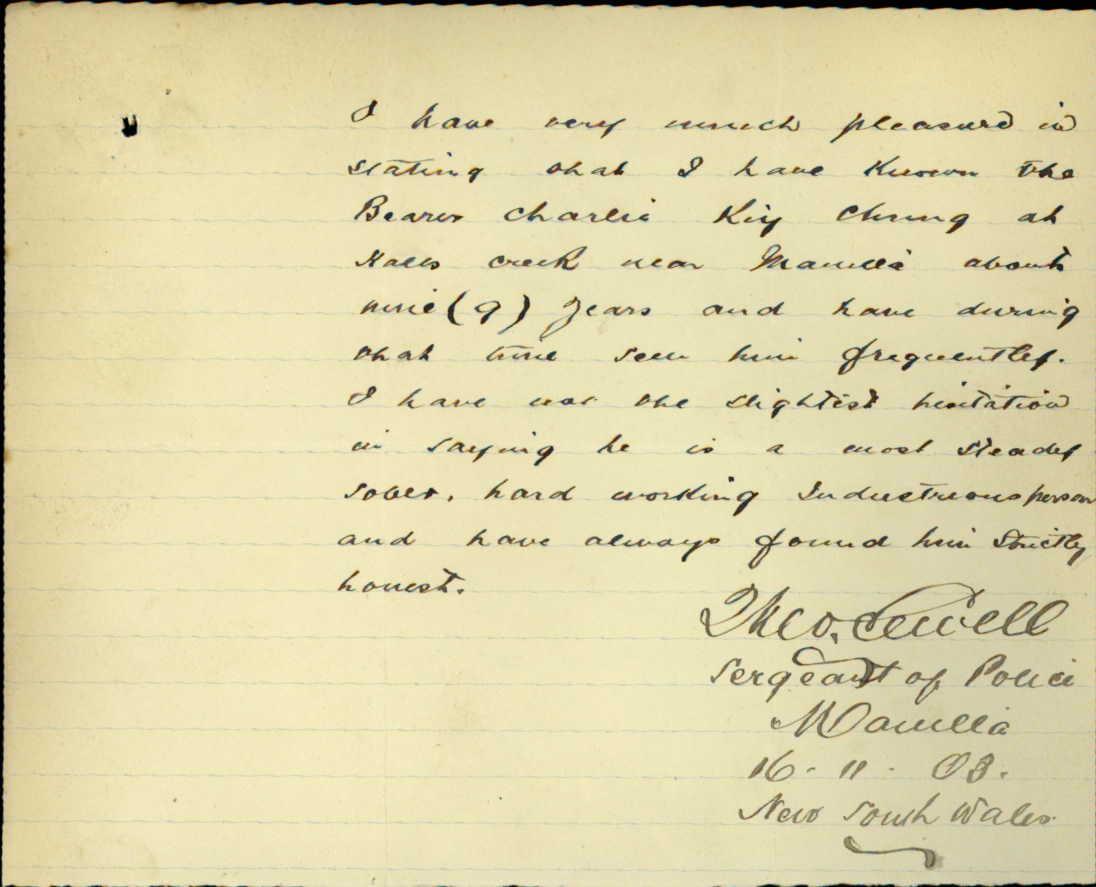 I have very much pleasure in
stating that I have Known the
Bearer Charlie Kiy Chung at
Halls creek near Manilla about
nine (9) years and have during
that time seen him frequently.
I have not the slightest hesitation
in saying he is a most steady
sober, hard working Industrious person
and have always found him Strictly
honest.
Theo. Sewell
Sergeant of Police
Manilla
16-11-03.
New South Wales